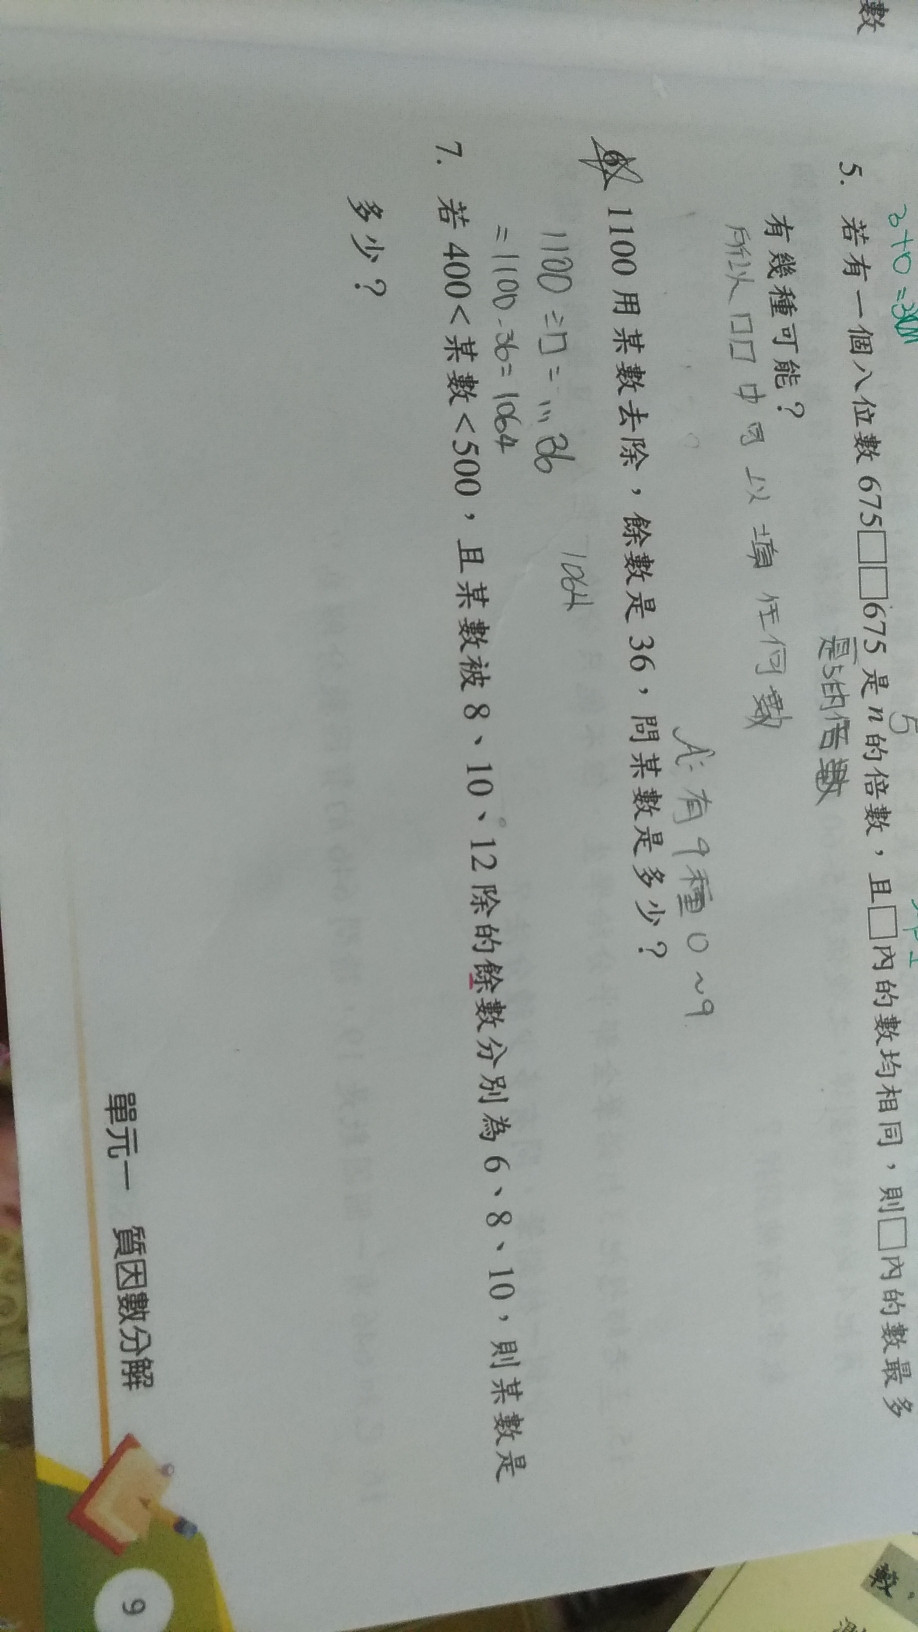 數
3+0=3
5
5. 若有一個八位數 675□□675 是 n 的倍數，且□內的數均相同，則□內的數最多
是5的倍數
有幾種可能？
所以□□中可以填任何數
A:有9種 0~9
6. 1100 用某數去除，餘數是 36，問某數是多少？
1100÷□=…36
1064
=1100-36=1064
7. 若 400<某數<500，且某數被 8、10、12 除的餘數分別為 6、8、10，則某數是
多少？
單元一 質因數分解
9
數